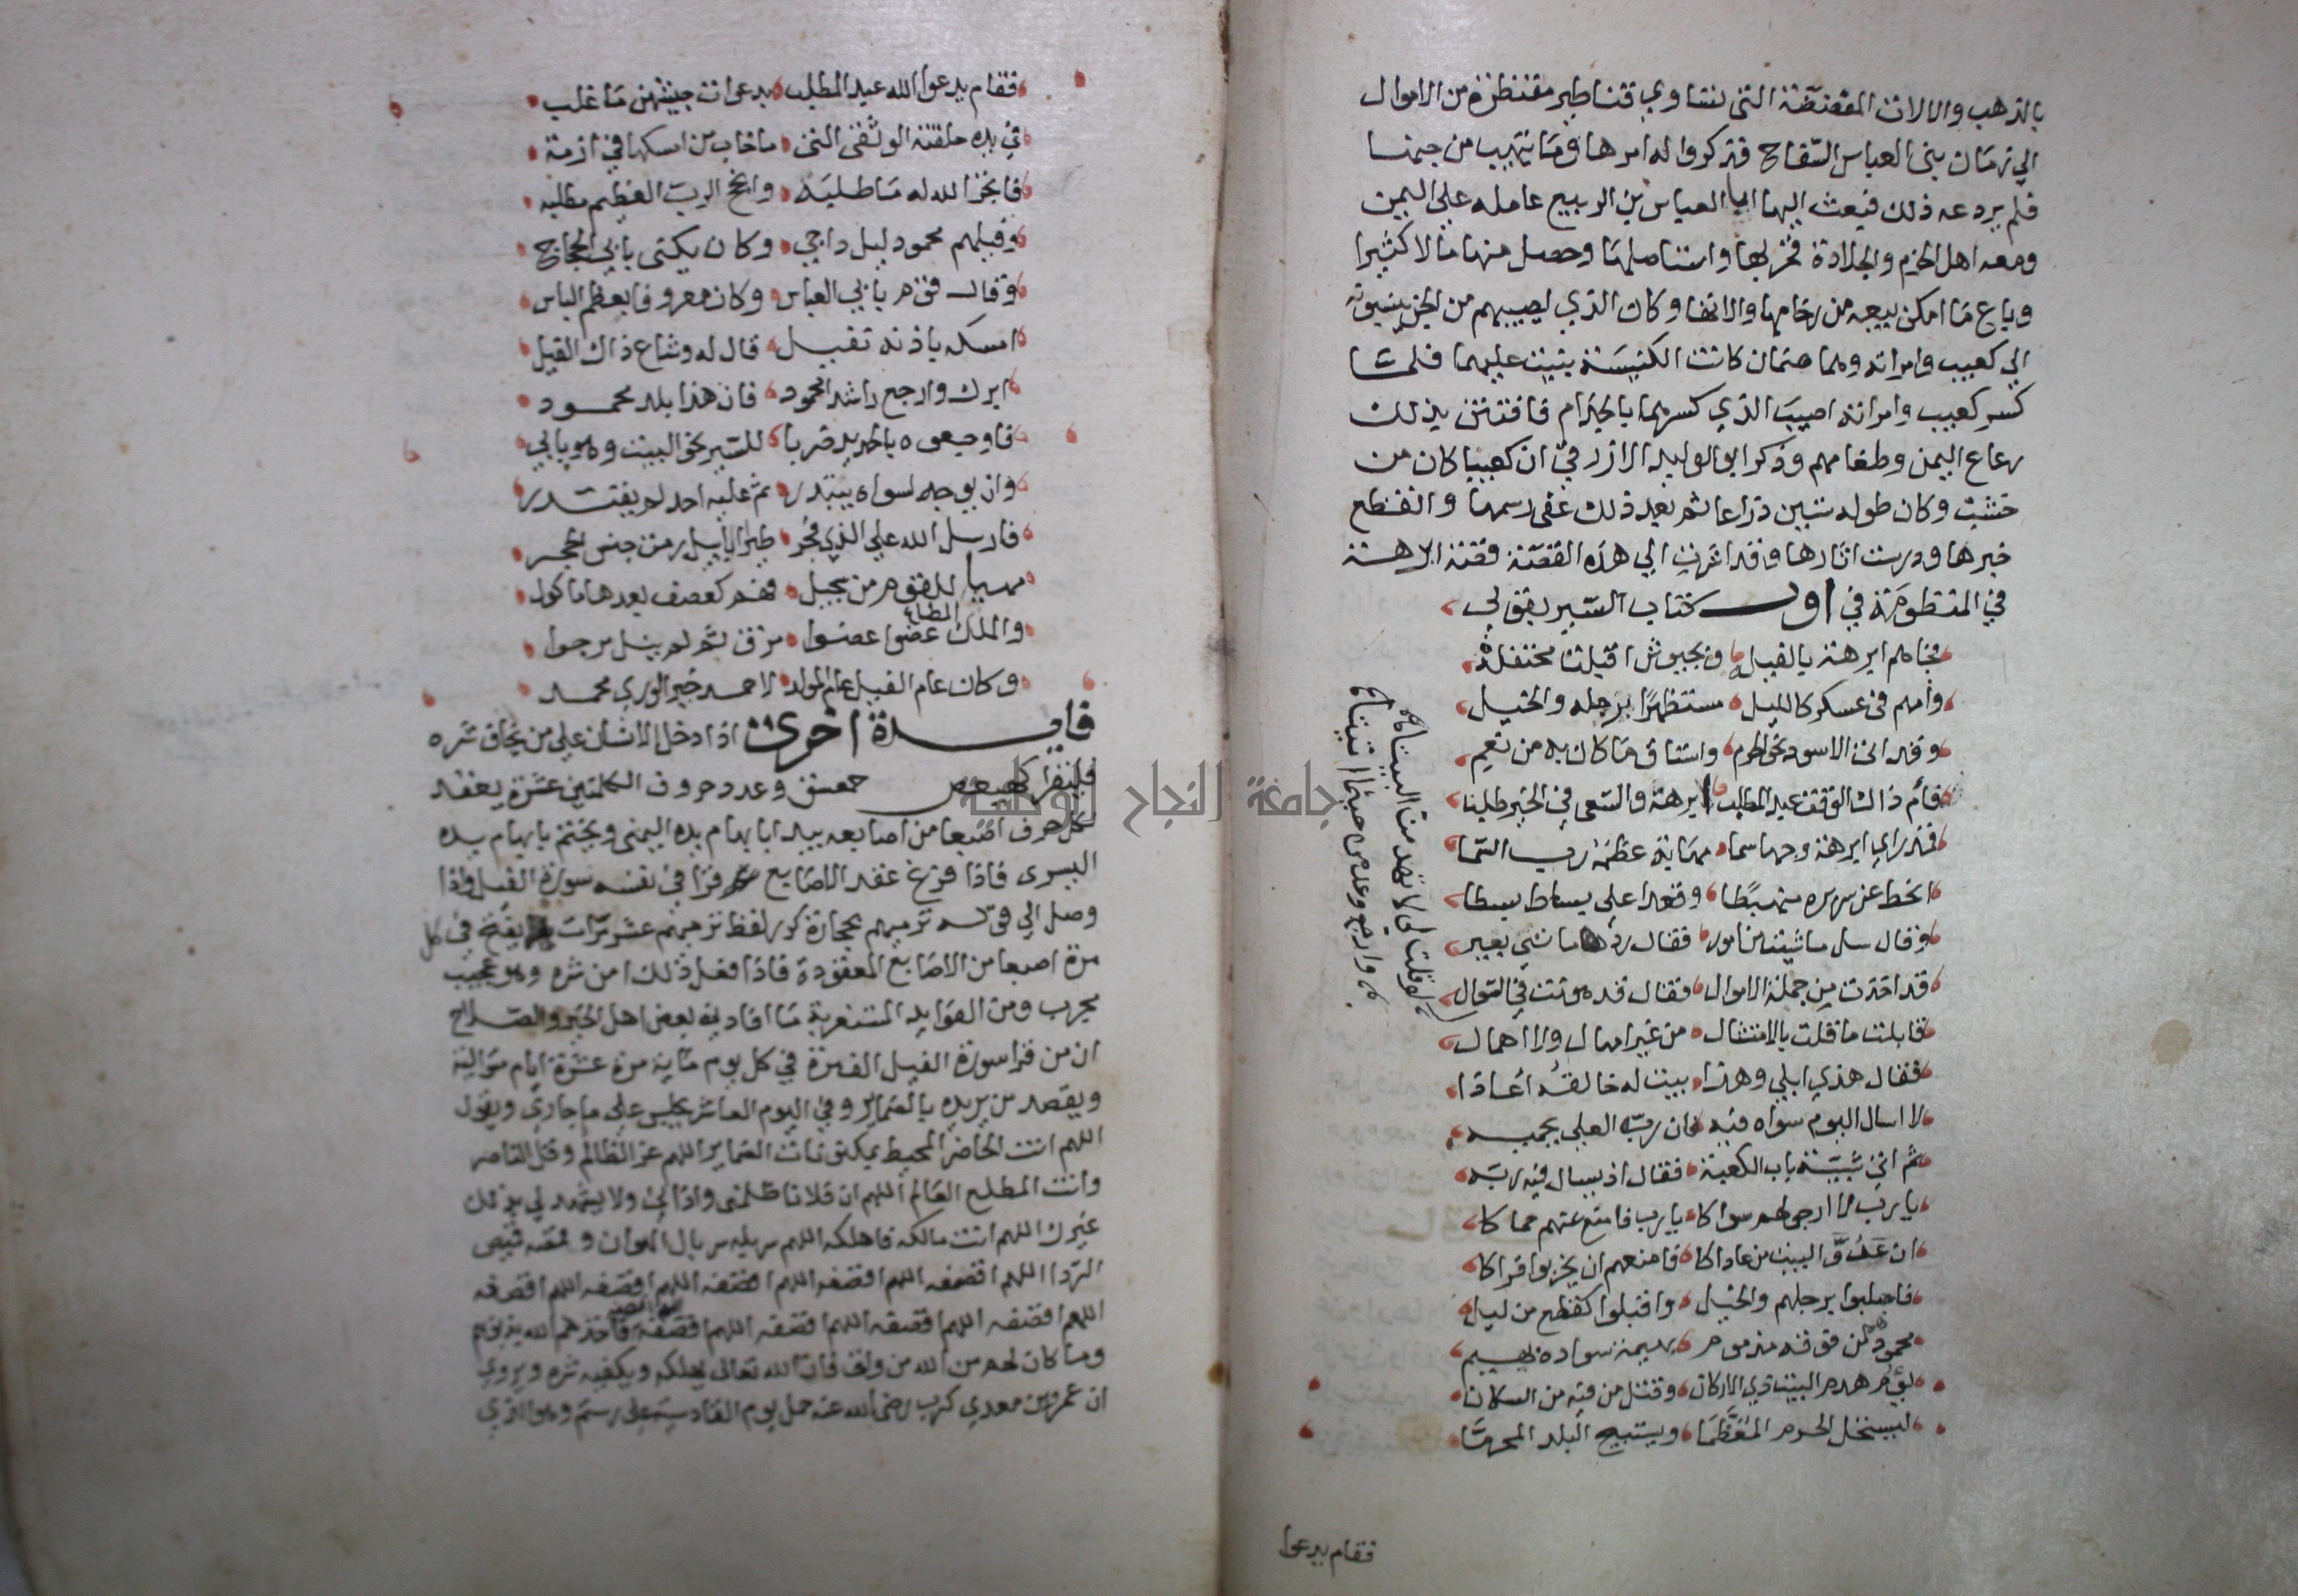 بالذهب والالات المفضضة التى تساوي قناطير مقنطرة من الاموال
الي زمان بنى العباس السفاح فذكروا له امرها وما يتهيب من جنها
فلم يردعه ذلك فبعث اليها ابا العباس بن الربيع عامله على اليمن
ومعه اهل الحزم والجلادة فخربها واستاصلها وحصل منها مالا كثيرا
وباع ما امكن بيعه من رخامها والاتها وكان الذي يصيبهم من الجن ينسبونه
الي كعيب وامراته وهما صنمان كانت الكنيسة بنيت عليهما فلما
كسر كعيب وامراته اصيب الذي كسرهما بالجذام فافتتن بذلك
رعاع اليمن وطغامهم وذكر ابو الوليد الازرقي ان كعيبا كان من
خشب وكان طوله ستين ذراعا ثم بعد ذلك عفى رسمها وانقطع
خبرها ودرست اثارها وقد اشرت الي هذه القصة قصة ابرهة
في المنظومة في اول كتاب السير بقولي
فجاهم ابرهة بالفيل وجيوش اقبلت محتفلة
وامهم في عسكر كالليل مستظهرا برجله والخيل
وقد اتى الاسود نحو الحرم واستاق ما كان به من نعم
فام ذاك الوقت عبد المطلب ابرهة والسعى في الخير طلبا
فمذ راي ابرهة وجها سما مهابة عظمه رب السما
انحط عن سريره منهبطا وقعدا على بساط بسطا
وقال سل ما شئت من امور فقال رد مايتي بعير
قد اخذت من جملة الاموال فقال قد هونت في السوال
لو قلت لى لا تهد من البيتا
وارجع وعد من حيثما اتيتا
قابلت ما قلت بالامتثال من غير امهال ولا اهمال
فقال هذي ابلي وهذا بيت له خالقه اعاذا
لا اسال اليوم سواه فيه فان ربه العلي يحميه
ثم اتى شيبة باب الكعبة فقال اذ يسال فيه ربه
يا رب لا ارجو لهم سواكا يا رب فامنع عنهم حماكا
ان عدو البيت من عاداكا فامنعهم ان يخربوا قراكا
فاجلبوا برجلهم والخيل واقبلوا كقطع من ليل
محمودهم من فوقه مذموم بهيمة سواده بهيم
يؤم هدم البيت ذي الاركان وقتل من فيه من السكان
ليستحل الحرم المعظما ويستبيح البلد المحرما
فقام يدعوا
فقام يدعوا الله عبد المطلب بدعوات جيشهن ما غلب
في يده حلقته الوثقى التى ما خاب من امسكها في ازمة
فانجز الله له ما طلبه وانجح الرب العظيم مطلبه
وفيلهم محمود ليل داجي وكان يكنى بابي الحجاج
وقال قوم بابي العباس وكان معروفا بعظم الباس
امسكه باذنه نفيل قال له وشاع ذاك القيل
ابرك وارجع راشدا محمود فان هذا بلد محمود
فاوجعوه بالحديد ضربا للسير نحو البيت وهو يابي
وان يوجه لسواه يبتدر ثم عليه احد لم يقتدر
فارسل الله علي الذي فجر طيرا ابابيل رمت جنس الحجر
مهيا للقوم من سجيل فهم كعصف بعدها ماكول
والملك المطاع عضوا عضوا مزق ثم لم ينل مرجوا
وكان عام الفيل عام المولد لاحمد خير الوري محمد
فايدة اخرى اذا دخل الانسان علي من يخاف شره
فليقرا كهيعص حمعسق وعدد حروف الكلمتين عشرة يعقد
لكل حرف اصبعا من اصابعه يبدا بابهام يده اليمنى ويختم بابهام يده
اليسرى فاذا فرغ عقد الاصابع قرا في نفسه سورة الفيل فاذا
وصل الي قوله ترميهم بحجارة كرر لفظ ترميهم عشر مرات يفتح في كل
مرة اصبعا من الاصابع المعقودة فاذا فعل ذلك امن شره وهو عجيب
مجرب ومن الفوايد المستغربة ما افادنيه بعض اهل الخير والصلاح
ان من قرا سورة الفيل الف مرة في كل يوم ماية مرة عشرة ايام متوالية
ويقصد من يريده بالضماير وفي اليوم العاشر يجلس على ما جاري ويقول
اللهم انت الحاضر المحيط بمكنونات الضماير اللهم عز الظالم وقل الناصر
وانت المطلع العالم اللهم ان فلانا ظلمنى واذانى ولا يشهد لي بذلك
غيرك اللهم انت مالكه فاهلكه اللهم سربله سربال الهوان وقمصه قميص
الردا اللهم اقصفه اللهم اقصفه اللهم اقصفه اللهم اقصفه اللهم اقصفه
اللهم اقصفه اللهم اقصفه اللهم اقصفه اللهم اقصفه فاخذهم الله بذنوبهم
وما كان لهم من الله من واق فان الله تعالى يهلكه ويكفيه شره وبروي
ان عمرو بن معدي كرب رضى الله عنه حمل يوم القادسية على رستم وهو الذي
جامعة النجاح الوطنية